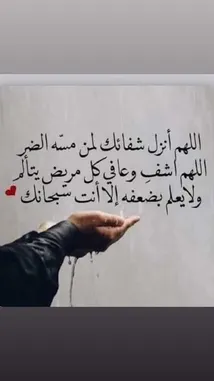 اللهم أنزل شفائك لمن مسّه الضر
اللهم اشفِ وعافي كل مريض يتألم
ولا يعلم بضعفه إلا أنت سبحانك